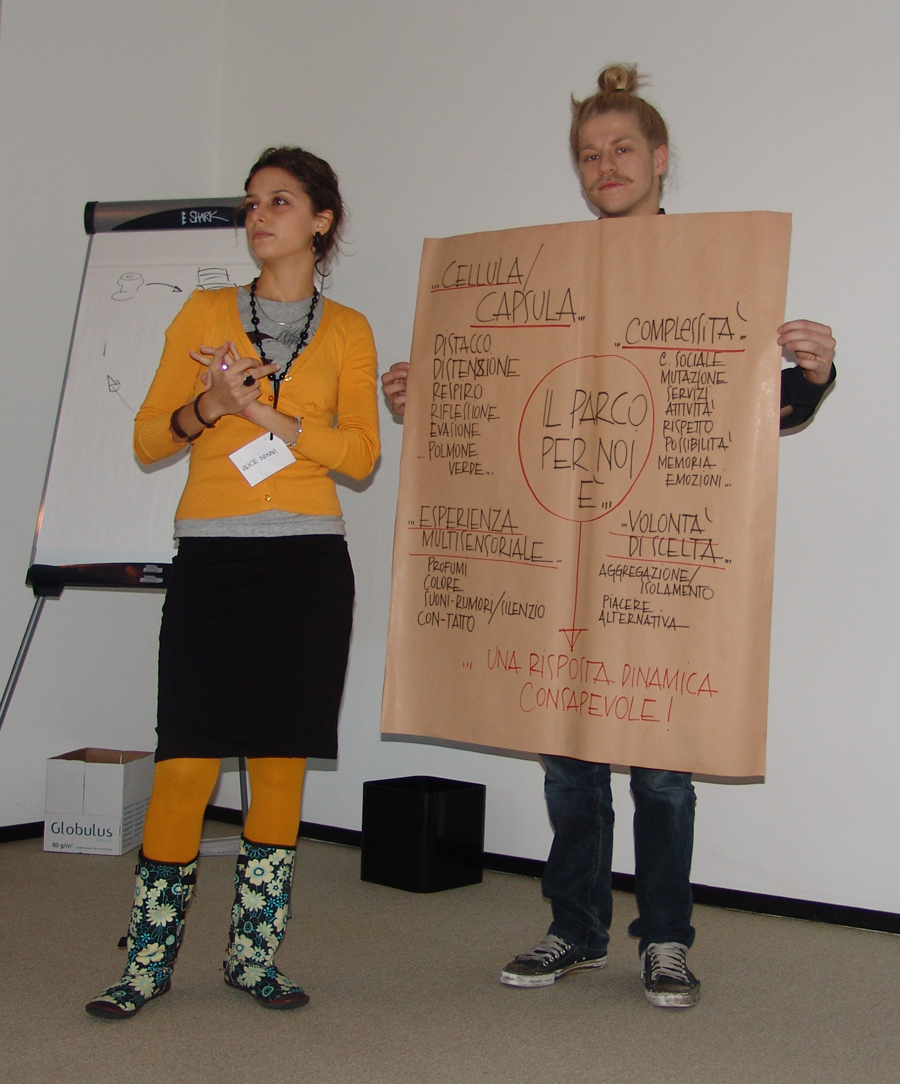 SHARK
ALICE NINNI
...CELLULA/
CAPSULA...
DISTACCO
DISTENSIONE
RESPIRO
RIFLESSIONE
EVASIONE
...POLMONE
VERDE...
...COMPLESSITÀ...
C. SOCIALE
MUTAZIONE
SERVIZI
ATTIVITÀ
RISPETTO
POSSIBILITÀ
MEMORIA
EMOZIONI...
IL PARCO
PER NOI
È...
...ESPERIENZA
MULTISENSORIALE...
PROFUMI
COLORE
SUONI-RUMORI/SILENZIO
CON-TATTO
...VOLONTÀ
DI SCELTA...
AGGREGAZIONE/
ISOLAMENTO
PIACERE
ALTERNATIVA
... UNA RISPOSTA DINAMICA
CONSAPEVOLE!
Globulus
80 g/m²